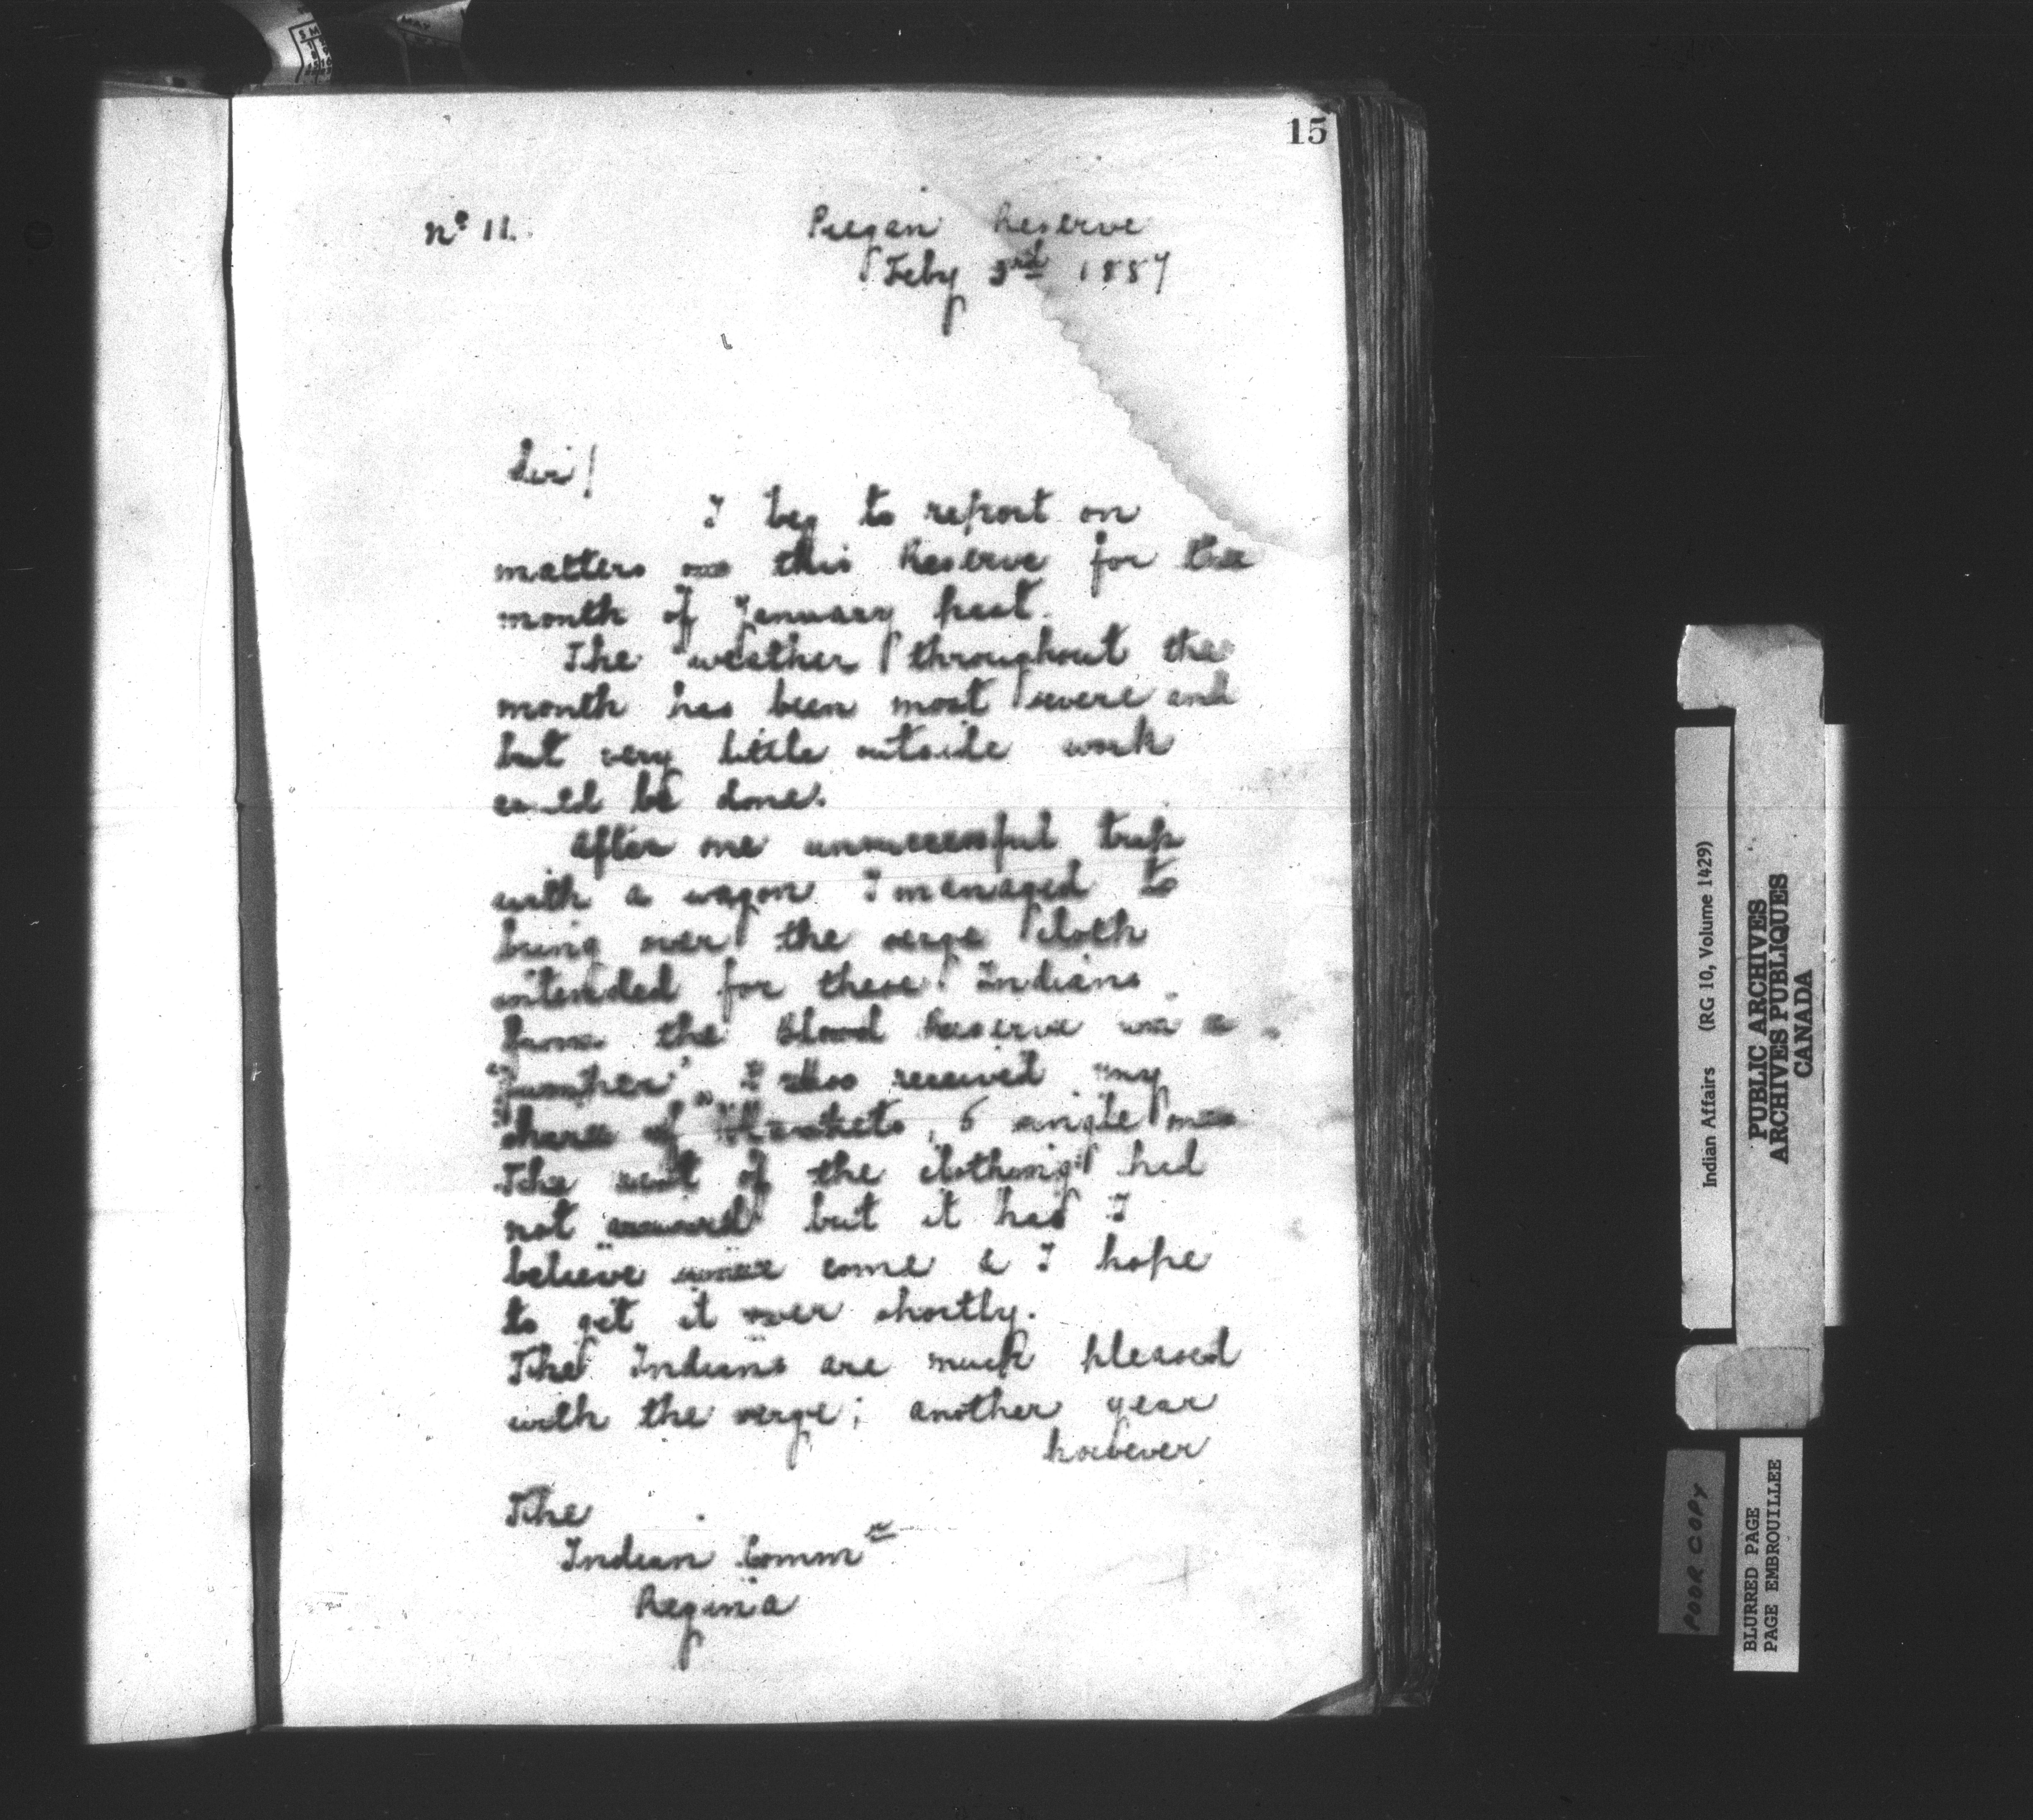 15
No 11.
Piegan Reserve
Feby 3rd 1887
Sir!
I beg to report on
matters on this Reserve for the
month of January past.
The weather throughout the
month has been most severe and
but very little outside work
could be done.
After one unsuccessful trip
with a wagon I managed to
bring over the serge cloth
intended for these Indians
from the Blood Reserve on a
"jumper". I also received my
share of Blankets, 6 single ones
The rest of the clothing had
not arrived but it has I
believe since come & I hope
to get it over shortly.
The Indians are much pleased
with the serge; another year
however
The
Indian Commr
Regina
Indian Affairs (RG 10, Volume 1429)
PUBLIC ARCHIVES
ARCHIVES PUBLIQUES
CANADA
POOR COPY
BLURRED PAGE
PAGE EMBROUILLEE